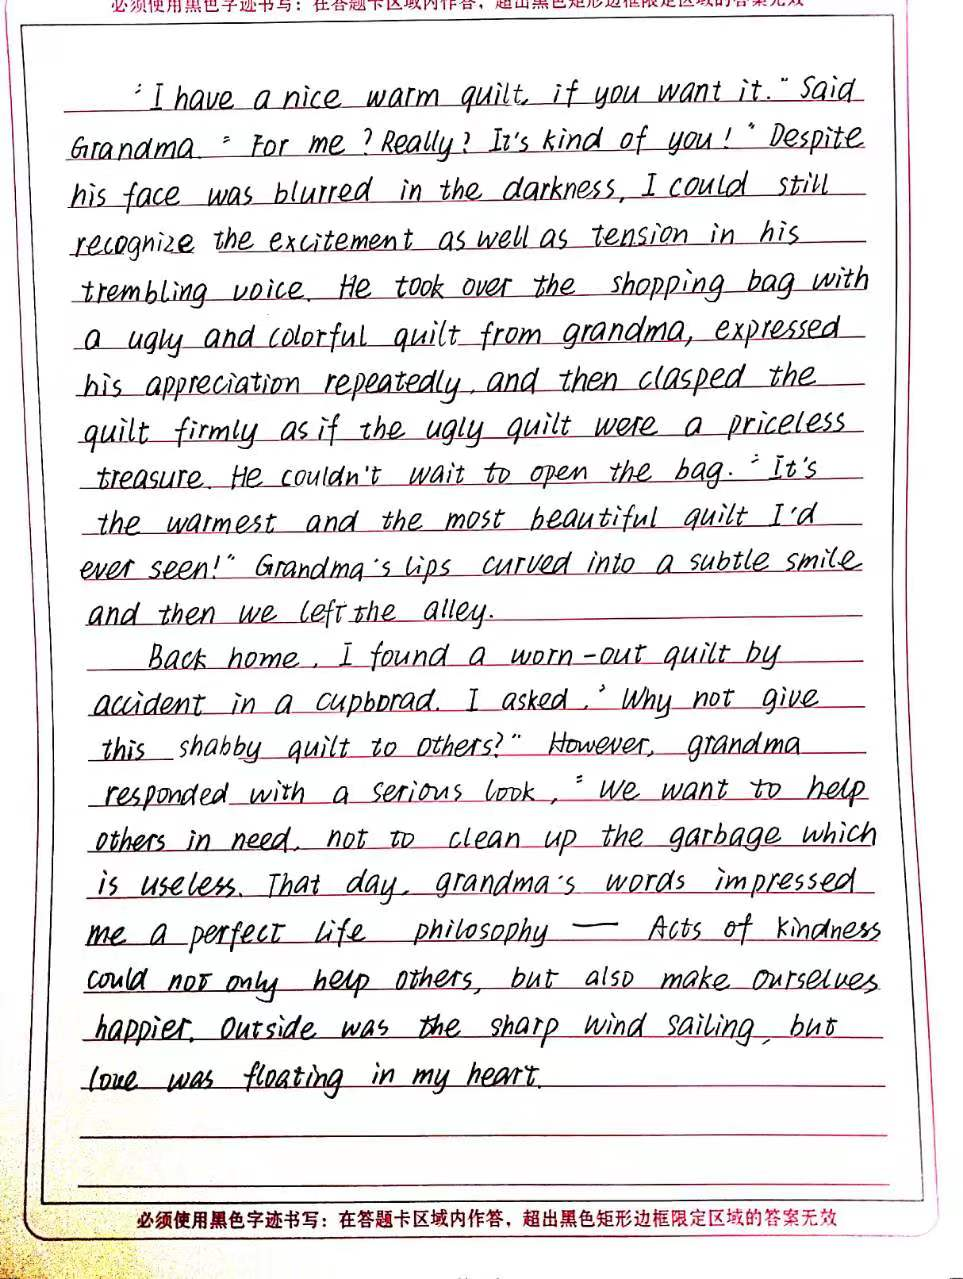 必须使用黑色字迹书写：在答题卡区域内作答，超出黑色矩形边框限定区域的答案无效
"I have a nice warm quilt, if you want it." Said
Grandma. "For me? Really? It's kind of you!" Despite
his face was blurred in the darkness, I could still
recognize the excitement as well as tension in his
trembling voice. He took over the shopping bag with
a ugly and colorful quilt from grandma, expressed
his appreciation repeatedly, and then clasped the
quilt firmly as if the ugly quilt were a priceless
treasure. He couldn't wait to open the bag. "It's
the warmest and the most beautiful quilt I'd
ever seen!" Grandma's lips curved into a subtle smile
and then we left the alley.
Back home, I found a worn-out quilt by
accident in a cupborad. I asked, "Why not give
this shabby quilt to others?" However, grandma
responded with a serious look, "We want to help
others in need, not to clean up the garbage which
is useless. That day, grandma's words impressed
me a perfect life philosophy — Acts of kindness
could not only help others, but also make ourselves
happier. Outside was the sharp wind sailing, but
love was floating in my heart.
必须使用黑色字迹书写：在答题卡区域内作答，超出黑色矩形边框限定区域的答案无效